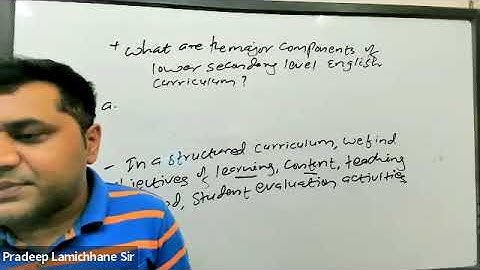 + What are the major components of
lower secondary level English
curriculum?
a.
- In a structured curriculum, we find
jectives of learning, content, teaching
od, student evaluation activities
Pradeep Lamichhane Sir